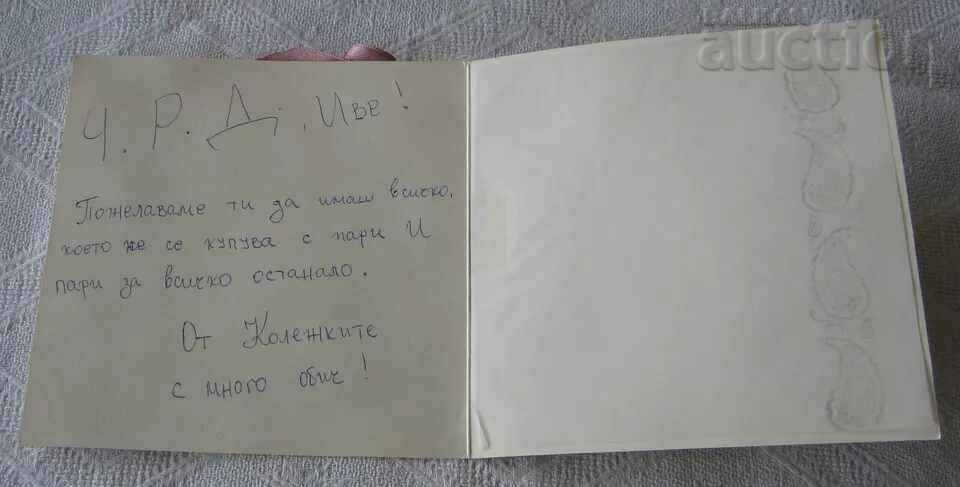 auction
Ч. Р. Д., Иве!
Пожелаваме ти да имаш всичко,
което не се купува с пари И
пари за всичко останало.
От Колежките
с много обич!